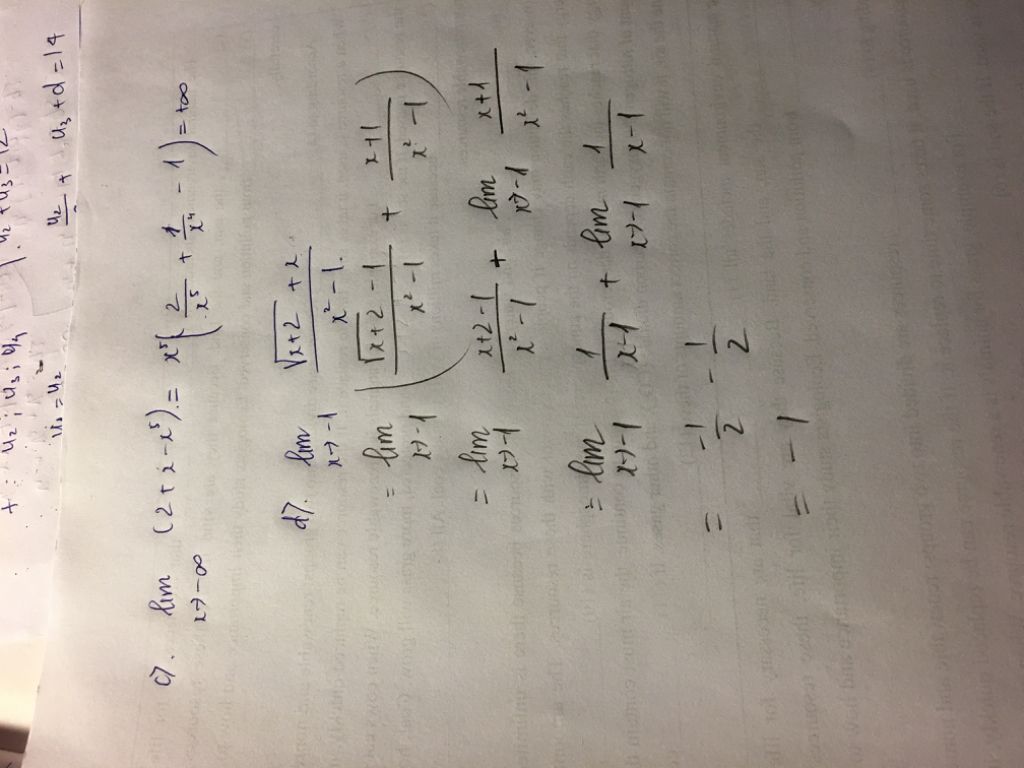 u₂ + u₃ = 12
+ u₃ + d = 14
u₂ ; u₃ ; u₄
u₁ = u₂
c). lim x→-∞ (2 + x - x⁵) = x⁵ ( 2/x⁵ + 1/x⁴ - 1 ) = +∞
d). lim x→-1 (√(x+2) + x)/(x² - 1)
= lim x→-1 ( (√(x+2) - 1)/(x² - 1) + (x+1)/(x² - 1) )
= lim x→-1 (x+2-1)/(x² - 1) + lim x→-1 (x+1)/(x² - 1)
= lim x→-1 1/(x-1) + lim x→-1 1/(x-1)
= -1/2 - 1/2
= -1